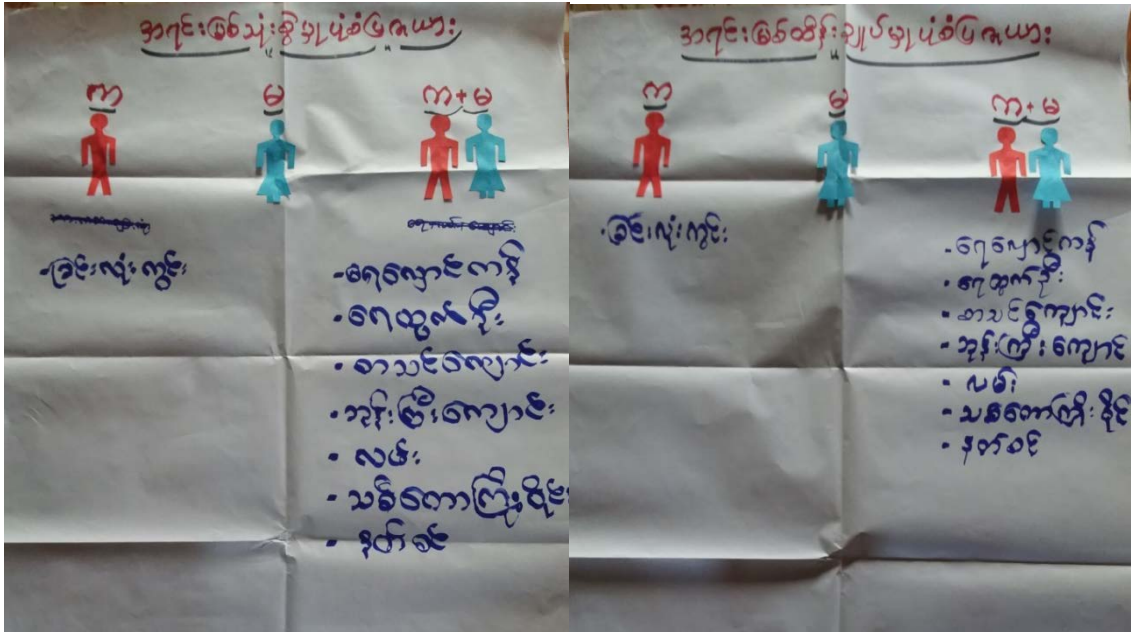 အရင်းမြစ်သုံးစွဲမှုပုံစံပြဇယား
ကျား
မ
ကျား + မ
- ခြင်းလုံးကွင်း
- ရေလှောင်ကန်
- ရေထွက်ဦး
- စာသင်ကျောင်း
- ဘုန်းကြီးကျောင်း
- လမ်း
- သစ်တောကြိုးဝိုင်း
- နတ်စင်
အရင်းမြစ်ထိန်းချုပ်မှုပုံစံပြဇယား
က
မ
က + မ
- ခြင်းလုံးကွင်း
- ရေလှောင်ကန်
- ရေထွက်ဦး
- စာသင်ကျောင်း
- ဘုန်းကြီးကျောင်း
- လမ်း
- သစ်တောကြိုးဝိုင်း
- နတ်စင်